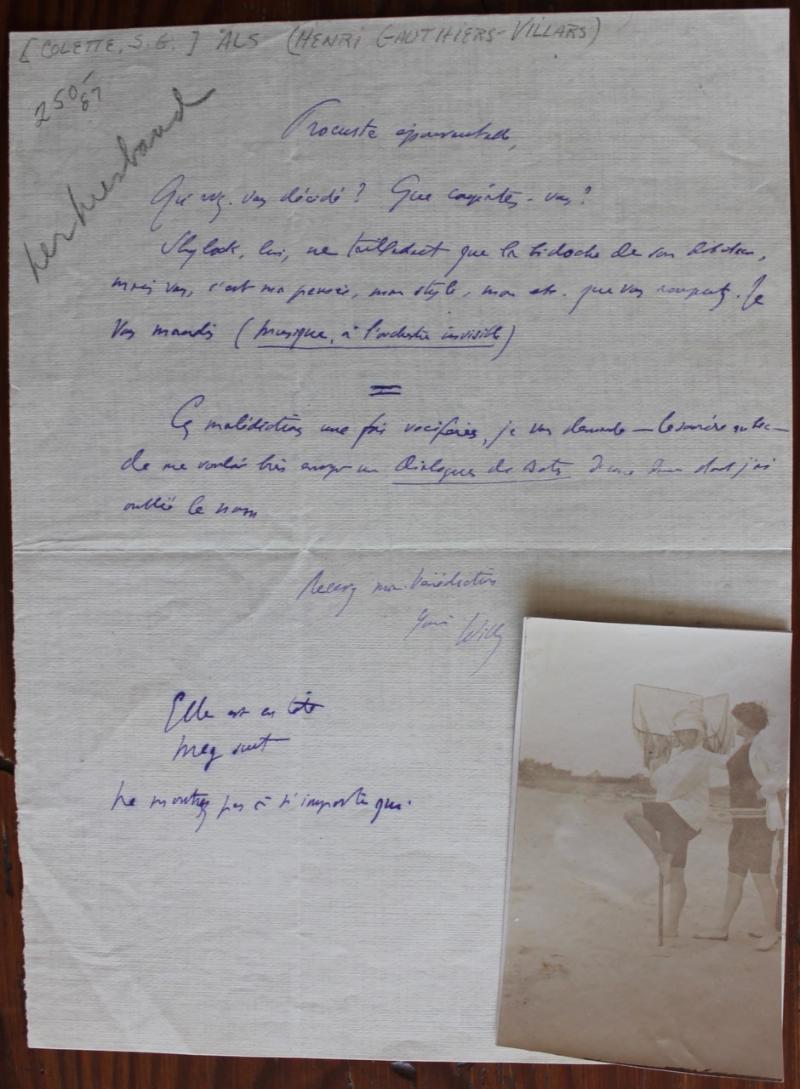 [COLETTE, S. G.] ALS (HENRI GAUTHIERS-VILLARS)
250/87
her husband
Procuste épouvantable,
Qu'avez-vous décidé ? Que coupâtes-vous ?
Shylock, lui, ne tailladait que la bidoche de son débiteur,
mais vous, c'est ma pensée, mon style, mon etc. que vous rompez. Je
Vous maudis (musique, à l'orchestre invisible)
Ces malédictions une fois vociférées, je vous demande — le sourire au bec —
de me vouloir bien envoyer un Dialogues de Bêtes d'une dont j'ai
oublié le nom
Recevez ma bénédiction
Willy
Elle est en tête
Meg suit
Ne montrez pas à n'importe qui.